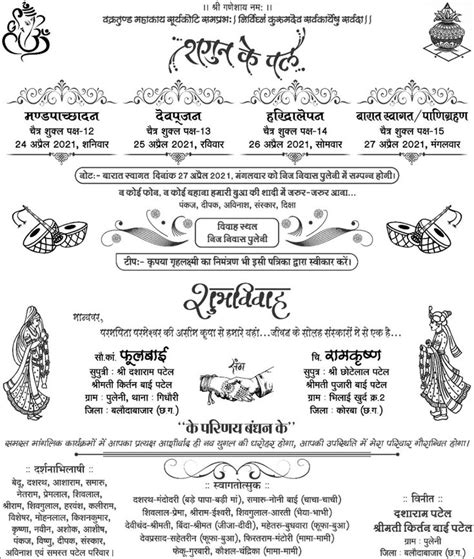 ।। श्री गणेशाय नम: ।।
वक्रतुण्ड महाकाय सूर्यकोटि समप्रभ:। निर्विघ्नं कुरूमदेव सर्वकार्येषु सर्वदा।।
शगुन के पल
मण्डपाच्छादन
चैत्र शुक्ल पक्ष-12
24 अप्रैल 2021, शनिवार
देवपूजन
चैत्र शुक्ल पक्ष-13
25 अप्रैल 2021, रविवार
हरिद्रालेपन
चैत्र शुक्ल पक्ष-14
26 अप्रैल 2021, सोमवार
बारात स्वागत/पाणिग्रहण
चैत्र शुक्ल पक्ष-15
27 अप्रैल 2021, मंगलवार
नोट:- बारात स्वागत दिनांक 27 अप्रैल 2021, मंगलवार को निज निवास पुलेनी में सम्पन्न होगी।
न कोई फोन, न कोई बहाना हमारी बुआ की शादी में जरुर-जरुर आना...
पंकज, दीपक, अविनाश, संस्कार, दिक्षा
विवाह स्थल
निज निवास पुलेनी
टीप:- कृपया गृहलक्ष्मी का निमंत्रण भी इसी पत्रिका द्वारा स्वीकार करें।
शुभविवाह
मान्यवर,
परमपिता परमेश्वर की असीम कृपा से हमारे यहां...जीवन के सोलह संस्कारों में से एक है...
सौ.कां. फूलबाई
सुपुत्री : श्री दशाराम पटेल
श्रीमती किर्तन बाई पटेल
ग्राम : पुलेनी, थाना : गिधौरी
जिला : बलौदाबाजार (छ.ग.)
संग
चि. रामकृष्ण
सुपुत्र : श्री छोटेलाल पटेल
श्रीमती पुजारी बाई पटेल
ग्राम : भिलाई खुर्द क्र.2
जिला : कोरबा (छ.ग.)
"के परिणय बंधन के"
समस्त मांगलिक कार्यक्रमों में आपका प्रत्यक्ष आशीर्वाद ही नव युगल की धरोहर होगा, आपकी उपस्थिति में मेरा परिवार गौरान्वित होगा।
:: दर्शनाभिलाषी ::
बेदु, दशरथ, आशाराम, समारु,
नेतराम, प्रेमलाल, शिवलाल,
श्रीराम, शिवगुलाल, हरवंश, कलीराम,
विशेषर, मोहनलाल, किशनकुमार,
कृष्णा, नवीन, अशोक, आशोष,
पंकज, विष्णु, दीपक, संस्कार,
अविनाश एवं समस्त पटेल परिवार।
:: स्वागतोत्सुक ::
दशरथ-मंदोदरी (बड़े पापा-बड़ी मां), समारु-नोनी बाई (चाचा-चाची)
शिवलाल-प्रेमा, श्रीराम-ईश्वरी, शिवगुलाल-अमरीका (भैया-भाभी)
देवीचंद-श्रीमती, बिंदा-श्रीमत (जीजा-दीदी), महेतरु-बुधवारा (फूफा-बुआ)
देवप्रसाद-सहेरतीन (फूफा-बुआ), फिरतराम-मंटोरी (मामा-मामी)
फेकू-गुरबारी, कौशल-चंद्रिका (मामा-मामी)
:: विनीत ::
दशाराम पटेल
श्रीमती किर्तन बाई पटेल
ग्राम : पुलेनी